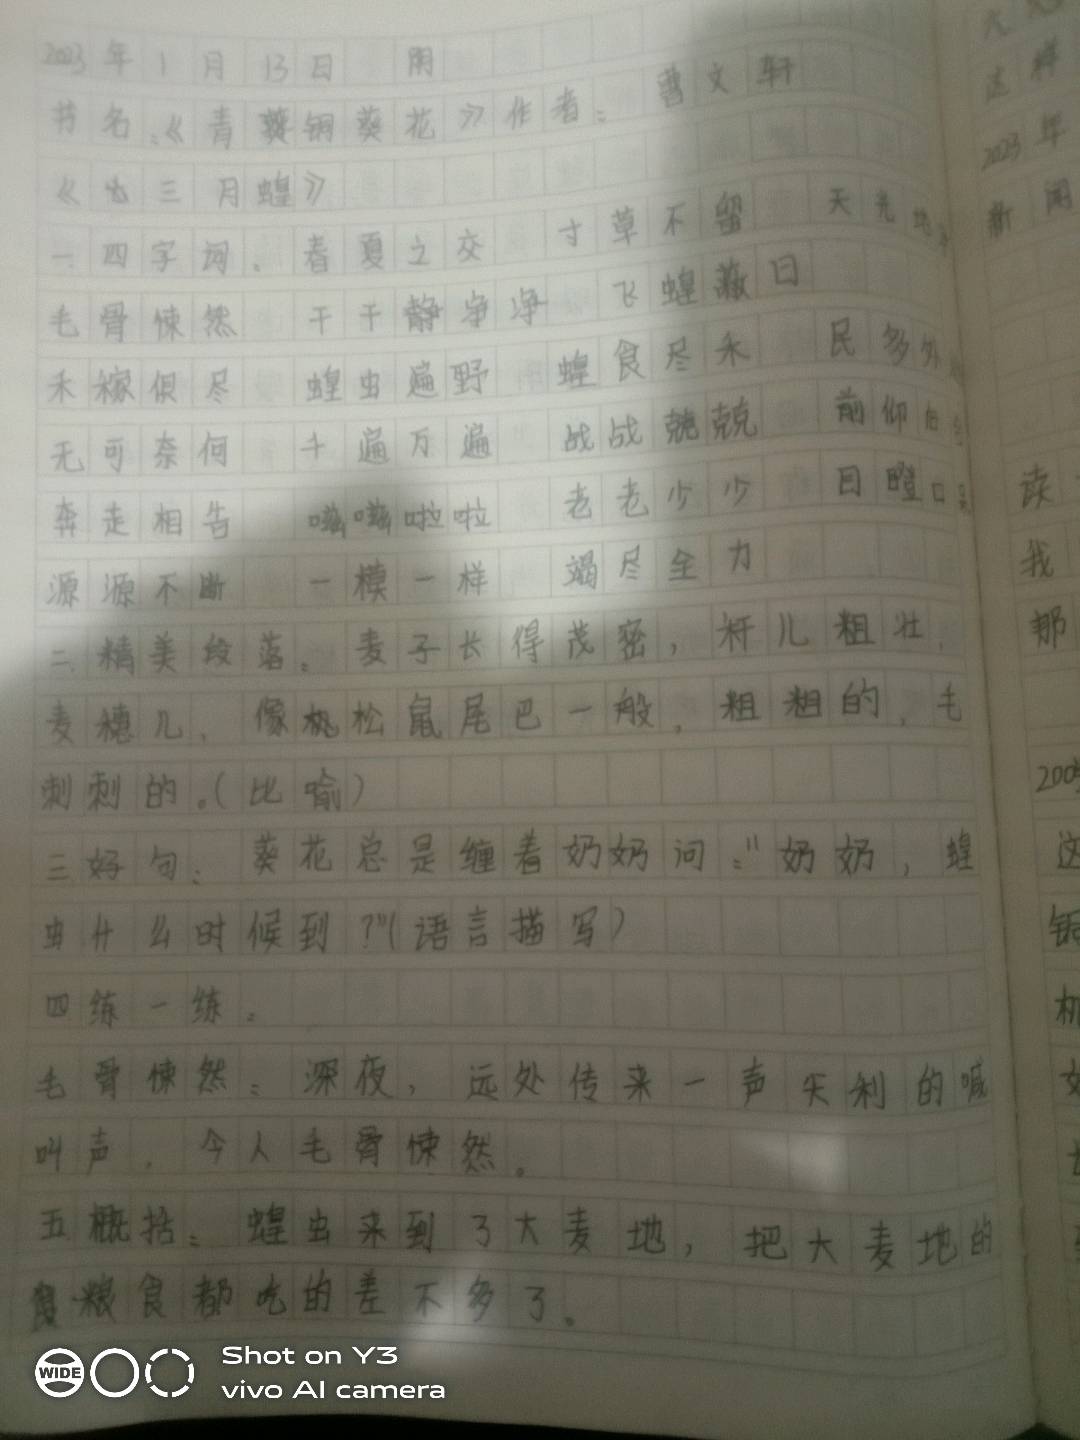 2023年1月13日 阴
书名:《青葵铜葵花》作者:曹文轩
《七三月蝗》
一.四字词.春夏之交 寸草不留 天光地
毛骨悚然 干干静净净 飞蝗蔽日
禾稼俱尽 蝗虫遍野 蝗食尽禾 民多外
无可奈何 千遍万遍 战战兢兢 前仰后
奔走相告 嗞嗞啦啦 老老少少 目瞪口呆
源源不断 一模一样 竭尽全力
二.精美段落:麦子长得茂密,秆儿粗壮,
麦穗儿,像松鼠尾巴一般,粗粗的,毛
刺刺的。(比喻)
三好句:葵花总是缠着奶奶问:"奶奶,蝗
虫什么时候到?"(语言描写)
四练一练:
毛骨悚然:深夜,远处传来一声尖利的喊
叫声,令人毛骨悚然。
五概括:蝗虫来到了大麦地,把大麦地的
粮食都吃的差不多了。
大
这样
2023年
新闻
读
我
那
200
这
铜
机
WIDE
Shot on Y3
vivo AI camera